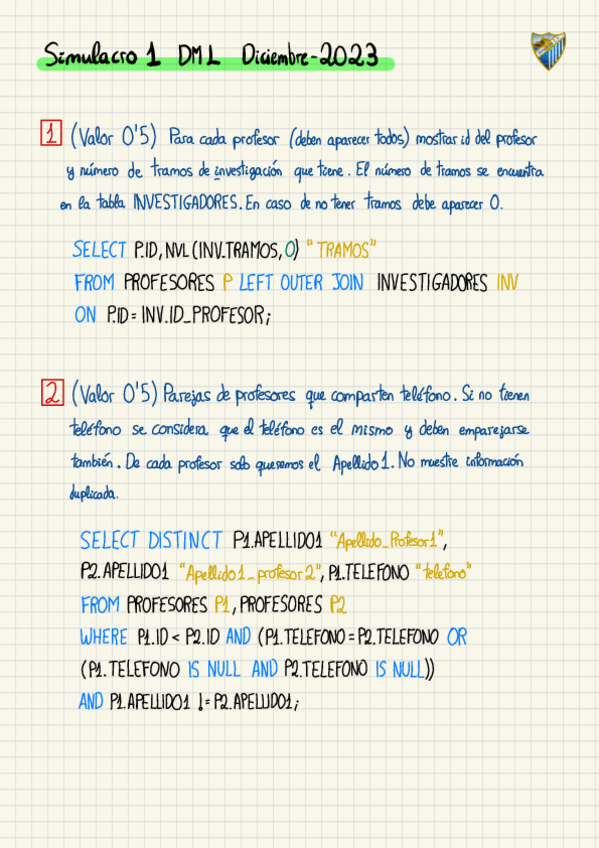 Simulacro 1 DML Diciembre-2023
1 (Valor 0'5) Para cada profesor (deben aparecer todos) mostrar id del profesor
y número de tramos de investigación que tiene. El número de tramos se encuentra
en la tabla INVESTIGADORES. En caso de no tener tramos debe aparecer 0.
SELECT P.ID, NVL (INV.TRAMOS, 0) "TRAMOS"
FROM PROFESORES P LEFT OUTER JOIN INVESTIGADORES INV
ON P.ID = INV.ID_PROFESOR;
2 (Valor 0'5) Parejas de profesores que comparten teléfono. Si no tienen
teléfono se considera que el teléfono es el mismo y deben emparejarse
también. De cada profesor solo queremos el Apellido1. No muestre información
duplicada.
SELECT DISTINCT P1.APELLIDO1 "Apellido_Profesor1",
P2.APELLIDO1 "Apellido1_profesor2", P1.TELEFONO "telefono"
FROM PROFESORES P1, PROFESORES P2
WHERE P1.ID < P2.ID AND (P1.TELEFONO = P2.TELEFONO OR
(P1.TELEFONO IS NULL AND P2.TELEFONO IS NULL))
AND P1.APELLIDO1 != P2.APELLIDO1;